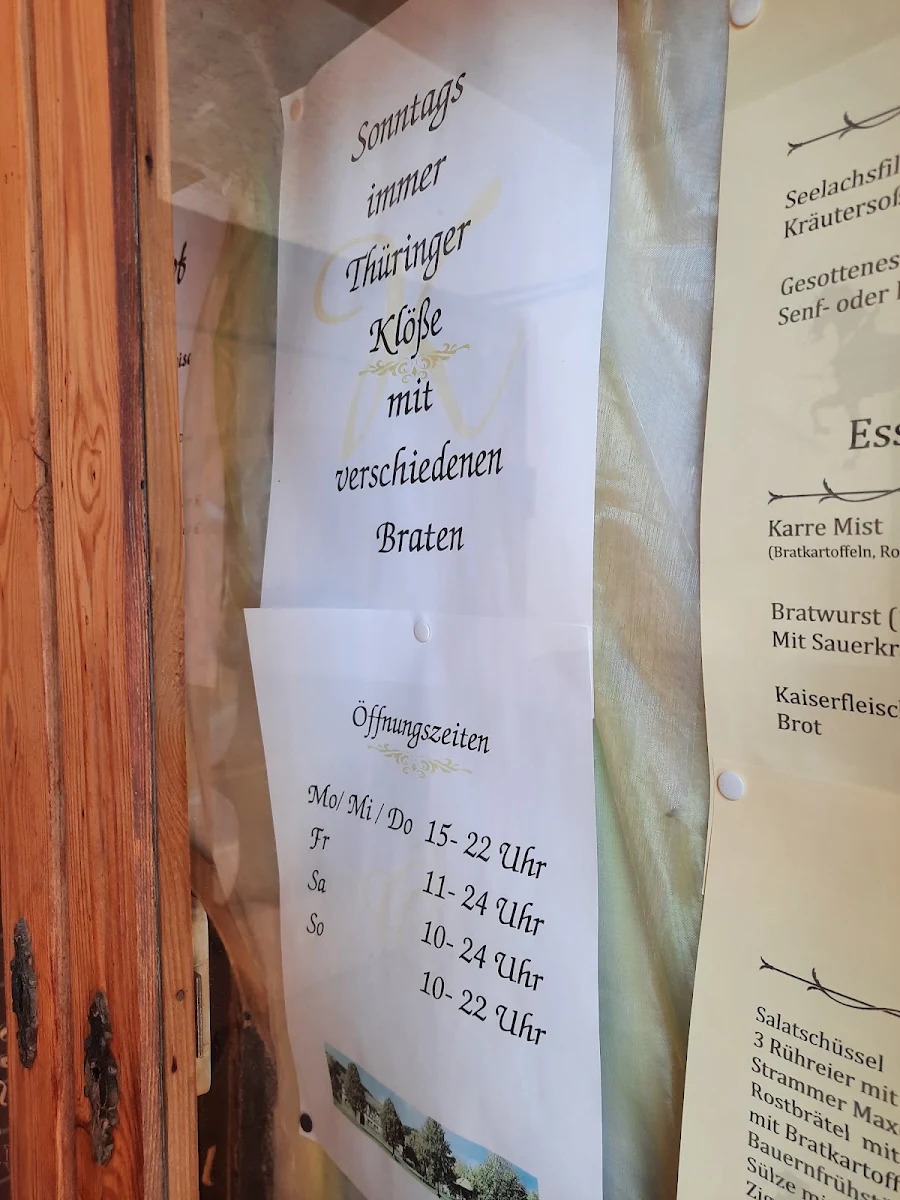 Sonntags
immer
Thüringer
Klöße
mit
verschiedenen
Braten
Öffnungszeiten
Mo/ Mi / Do 15- 22 Uhr
Fr 11- 24 Uhr
Sa 10- 24 Uhr
So 10- 22 Uhr
Kräutersoß
Gesottenes
Senf- oder
Karre Mist
(Bratkartoffeln,
Bratwurst (
Mit Sauerkr
Kaiserfleisch
Brot
Salatschüssel
3 Rühreier mit
Strammer Max
Rostbrätel mit
mit Bratkartoff
Bauernfrühs
Sülze m